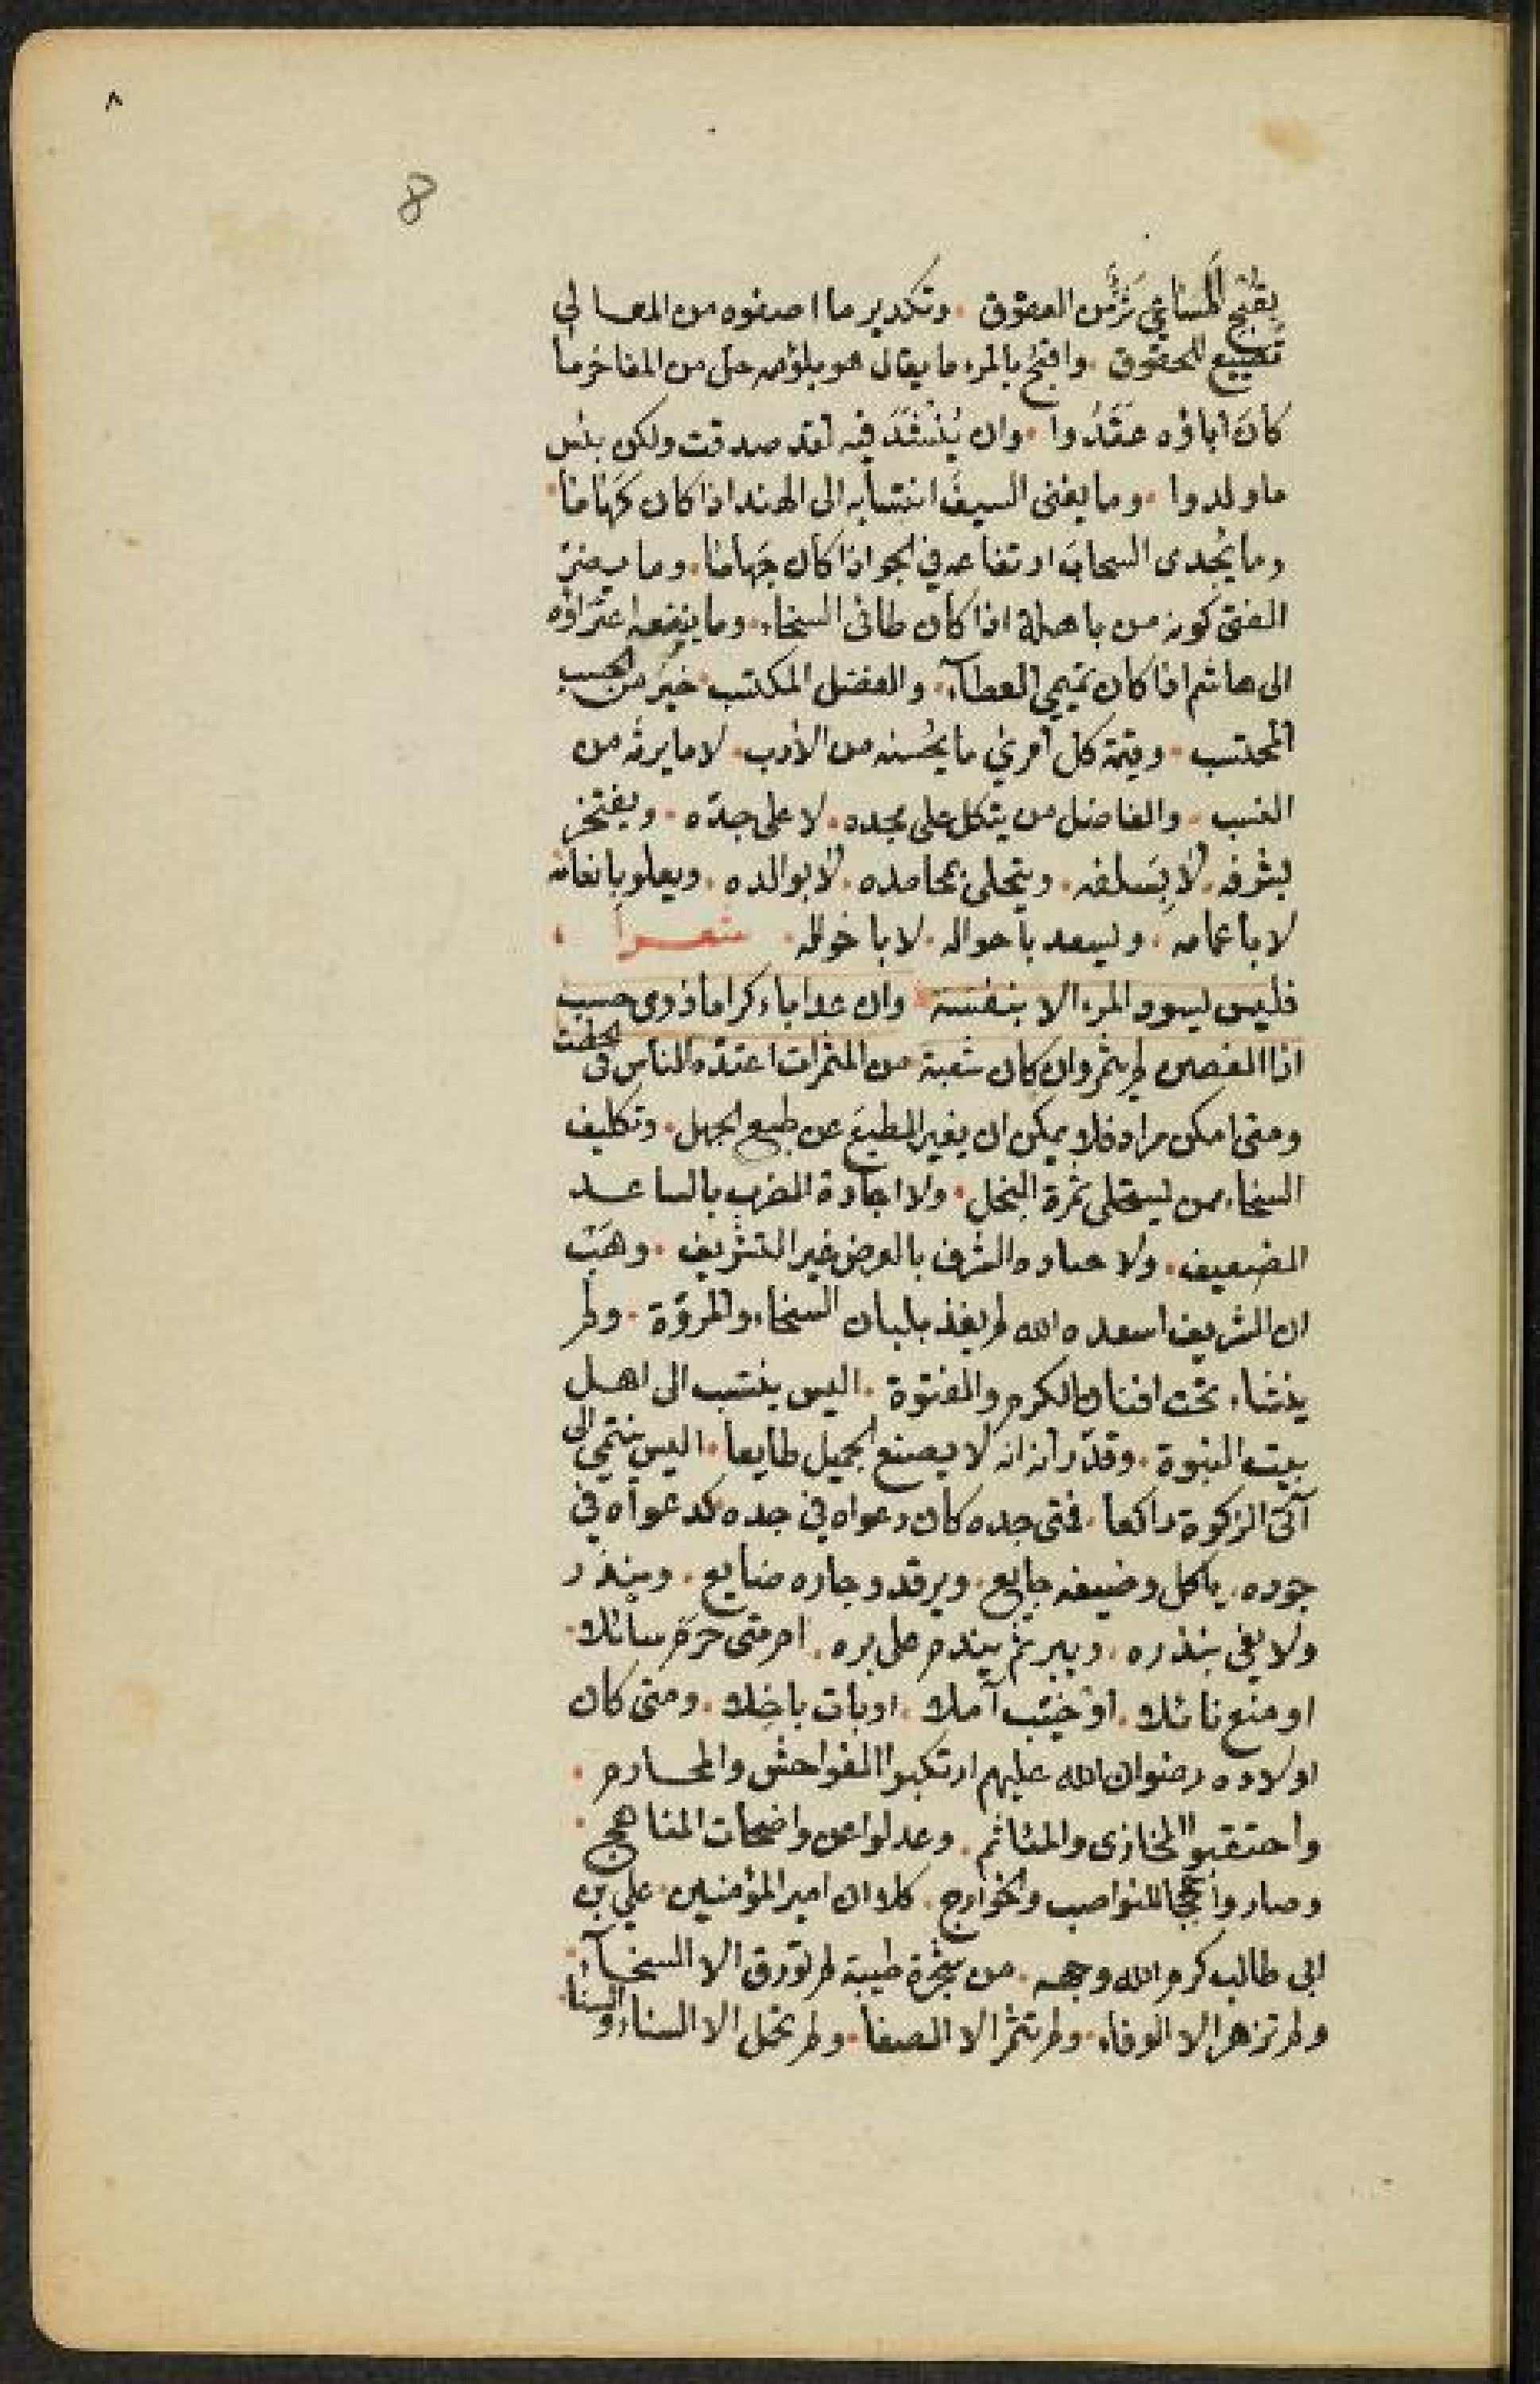 ٨
8
يقبح المساعي شر من العقوق . وتكدير ما اصفوه من المعالي
تضييع الحقوق . واقبح بالمرء ما يقال هو بلؤمه حل من المفاخر ما
كان اباؤه عقدوا . وان ينشد فيه لقد صدقت ولكن بئس
ما ولدوا . وما يغني السيف انتسابه الى الهند اذا كان كهاما .
وما يجدى السحاب ارتفاعه في الجو اذا كان جهاما . وما يضر
الفتى كونه من باهلة اذا كان طائى السخاء . وما ينفعه اعتزاؤه
الى هاشم اذا كان تميمي العطآء . والفضل المكتسب خير من الحسب
المحتسب . وقيمة كل امرئ ما يحسنه من الأدب . لا ما يرثه من
النسب . والفاضل من يتكل على مجده . لا على جده . ويفتخر
بشرفه . لا بسلفه . ويتحلى بمحامده . لا بوالده . ويعلو بانعامه
لا باعمامه . ويسعد باحواله . لا باخواله . شعرا
فليس يسود المرء الا بنفسه وان عد اباء كراما ذوى حسب
اذا الغصن لم يثمر وان كان شعبة من المثمرات اعتده الناس فى الحطب
ومتى امكن مراد فلا يمكن ان يغير الطبع عن طبع الجهل . وتكليف
السخاء ممن يستحلى ثمرة البخل . ولا اجادة الضرب بالساعد
الضعيف . ولا عماره الشرف بالعرض غير الشريف . وهب
ان الشريف اسعده الله لم يغذ بلبان السخاء والمروّة . ولم
ينشاء تحت افنان الكرم والفتوة . اليس ينتسب الى اهل
بيت النبوة . وقدّر انه انه لا يصنع الجميل طايعا . اليس ينتمي الى
آتى الزكوة راكعا . فمتى جده كان دعواه في جده كدعواه في
جوده . ياكل وضيفه جايع . ويرقد وجاره ضايع . وينذر
ولا يفي بنذره . ويبر ثم يندم على بره . ام متى حرم سائلا .
او منع نائلا . او خيب آملا . او بات باخلا . ومتى كان
اولاده رضوان الله عليهم ارتكبوا الفواحش والمحارم .
واحتقبوا المخازى والمئاثم . وعدلوا عن واضحات المناهج .
وصاروا حججا للنواصب والخوارج . كلا ان امير المؤمنين علي بن
ابى طالب كرم الله وجهه . من شجرة طيبة لم تورق الا السخآء .
ولم تزهر الا الوفاء . ولم تثمر الا الصفا . ولم تحمل الا السناء والسنا .